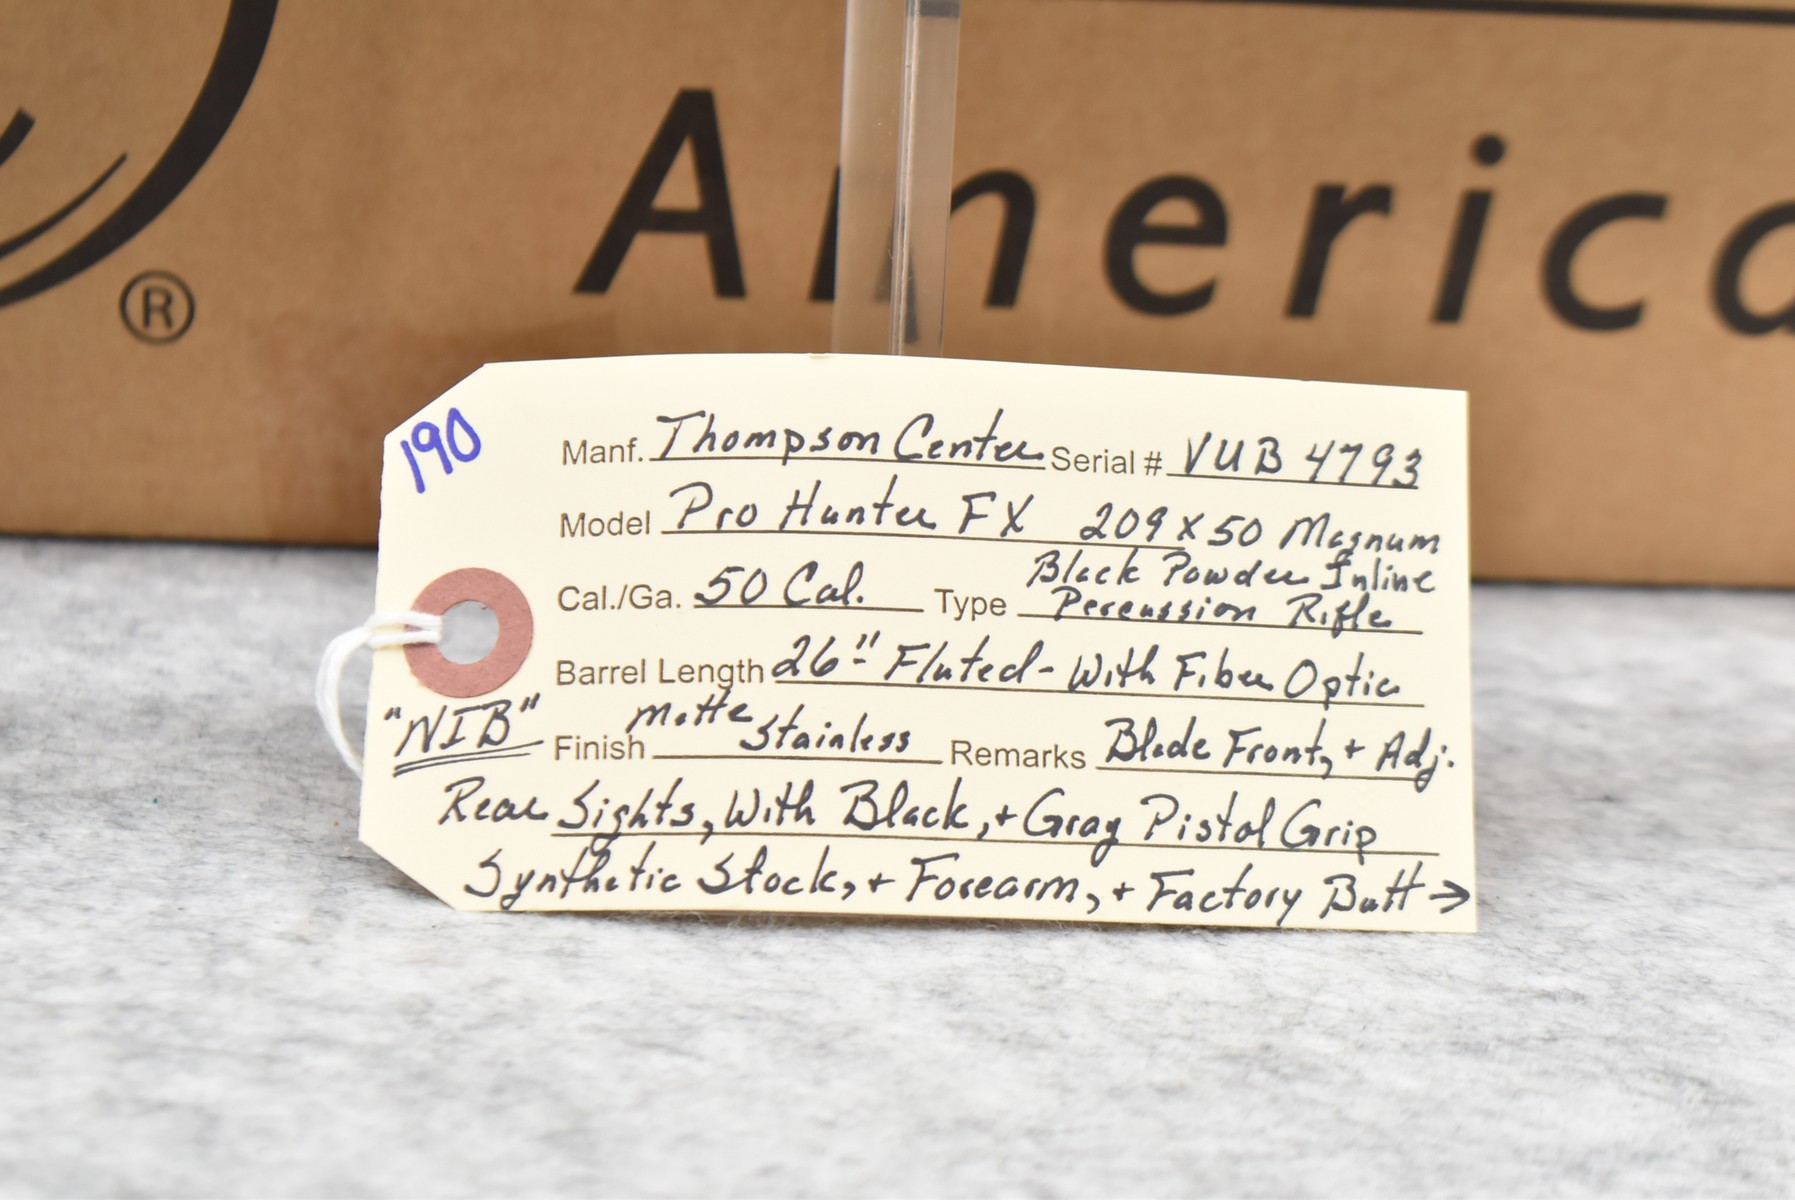 ®
America
190
Manf. Thompson Center Serial # VUB 4793
Model Pro Hunter FX 209 x 50 Magnum
Cal./Ga. 50 Cal. Type Black Powder Inline
Percussion Rifle
Barrel Length 26" Fluted - With Fiber Optic
"NIB" Finish Matte Stainless Remarks Blade Front, + Adj.
Rear Sights, With Black, + Gray Pistol Grip
Synthetic Stock, + Forearm, + Factory Butt →